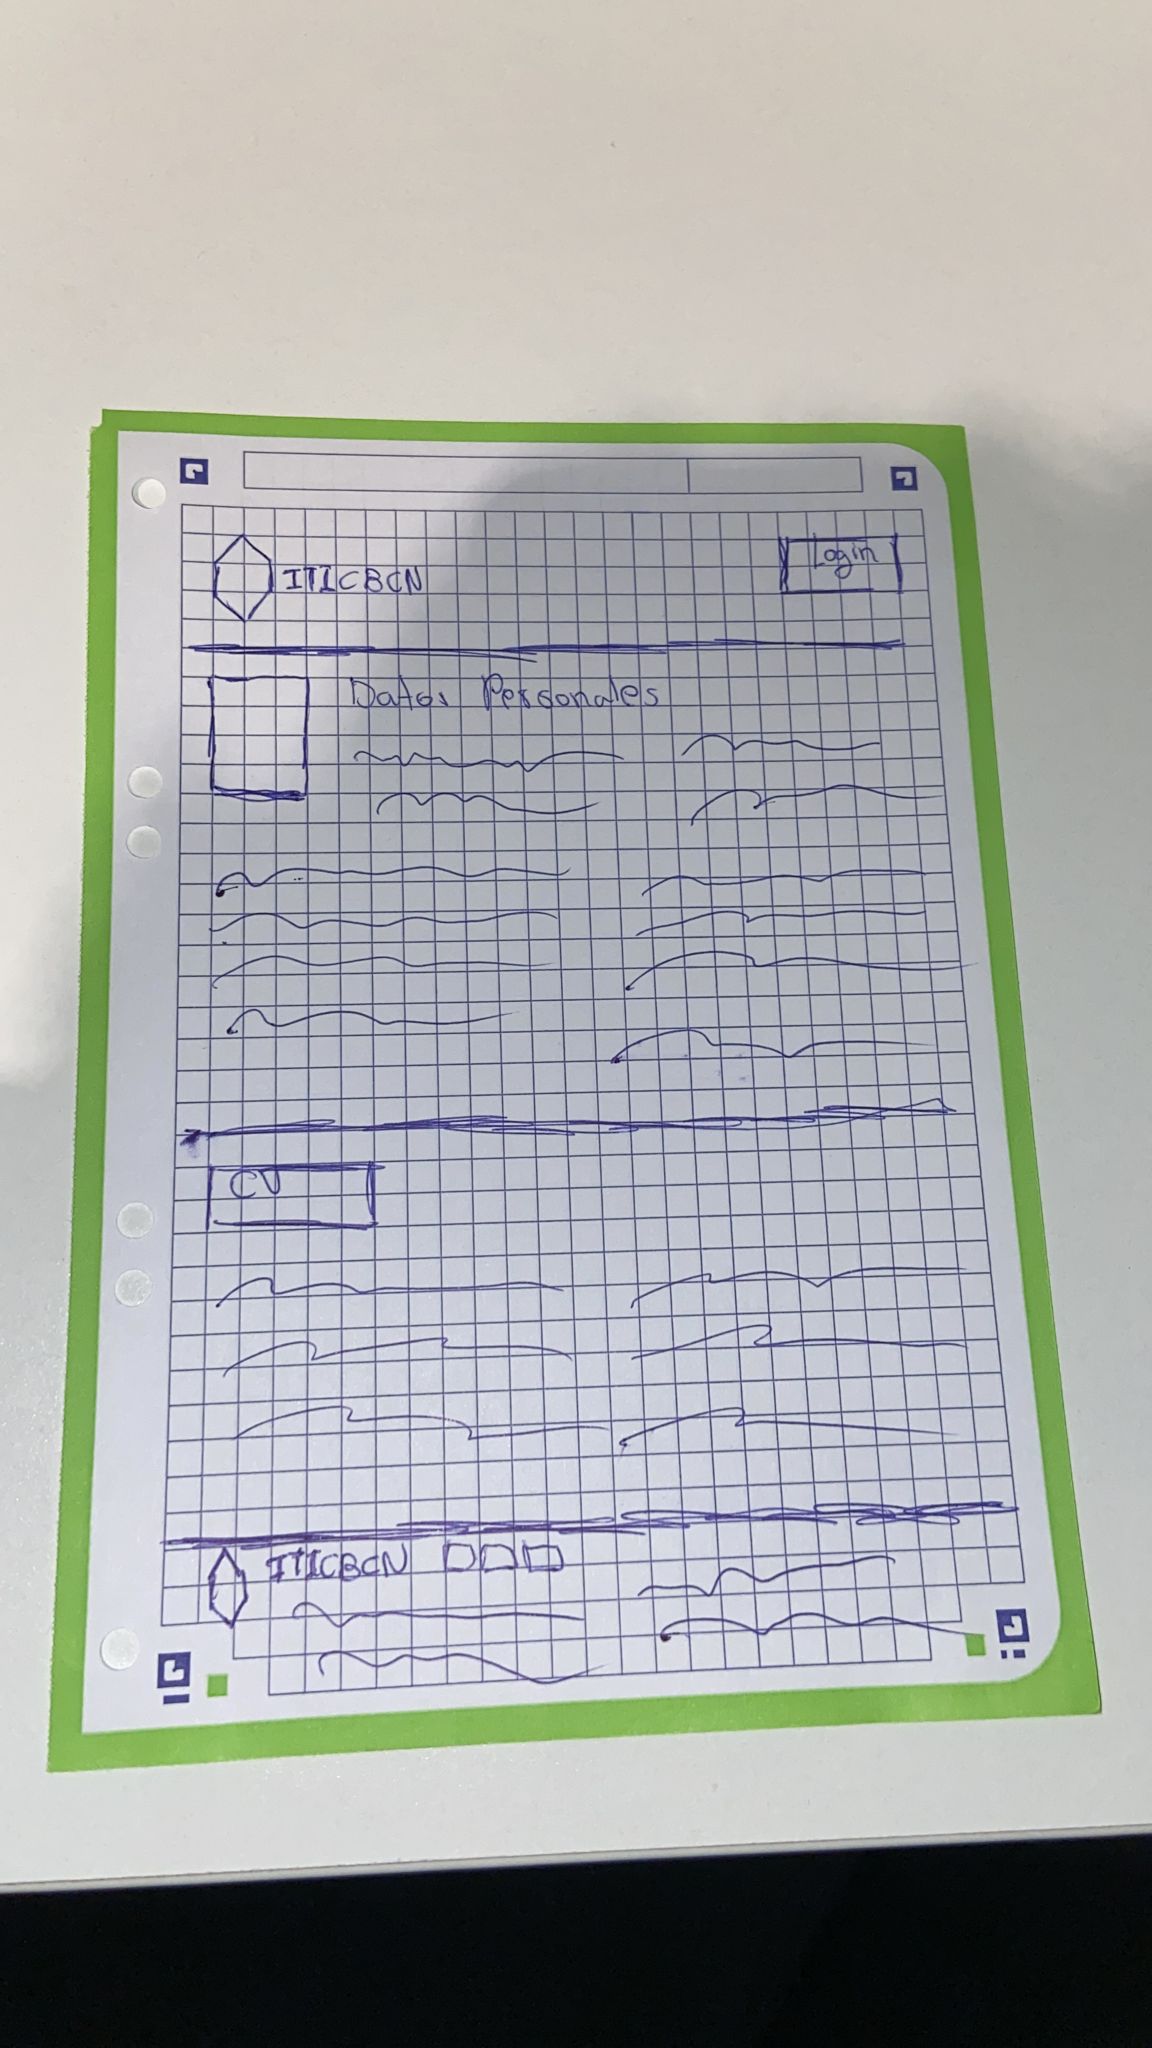 ITICBCN
Login
Datos Personales
CV
ITICBCN